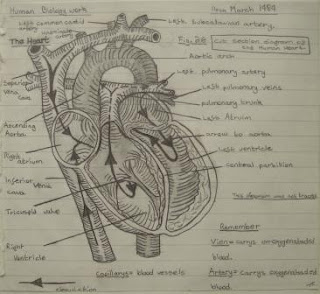 Human Biology work
March 1984
Left common carotid artery
Left Subclavian artery.
The Heart
Fig.
cut section diagram of the Human Heart.
Aortic arch
Left pulmonary artery
Superior Vena Cava
Left pulmonary veins
pulmonary trunk
Left Atrium
Ascending Aorta
arrow to aorta
Right atrium
Left ventricle
central partition
Inferior Vena cava
This diagram was not traced
Tricuspid valve
Remember
Right Ventricle
Vien = carrys un-oxygenated blood.
Capillarys = blood vessels
Artery = Carrys oxygenated blood.
= direction